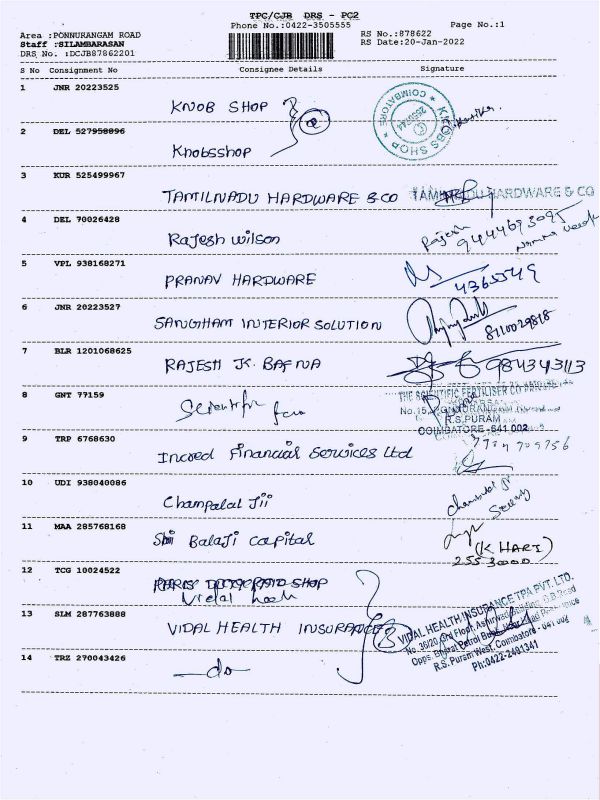 TPC/CJB DRS - PC2
Phone No.:0422-3505555
Page No.:1
Area :PONNURANGAM ROAD
Staff :SILAMBARASAN
DRS No. :DCJB87862201
RS No.:878622
RS Date:20-Jan-2022
S No Consignment No Consignee Details Signature
1 JNR 20223525
KNOB SHOP
2 DEL 527958896
Knobsshop
COIMBATORE
KNOBS SHOP
3 KUR 525499967
TAMILNADU HARDWARE & CO TAMILNADU HARDWARE & CO
4 DEL 70026428
Rajesh wilson
Rajesh
9444693095
5 VPL 938168271
PRANAV HARDWARE
4365549
6 JNR 20223527
SANGHAM INTERIOR SOLUTION
8110029818
7 BLR 1201068625
RAJESH JK. BAFNA
984343113
8 GNT 77159
Scientific
THE SCIENTIFIC FERTILISER CO
R.S.PURAM
COIMBATORE -641 002
9 TRP 6768630
Incred Financial Services Ltd
10 UDI 938040086
Champalal Jii
11 MAA 285768168
Sri Balaji Capital
(K HARI)
2553000
12 TCG 10024522
Vidal
13 SLM 287763888
VIDAL HEALTH INSURANCE
VIDAL HEALTH INSURANCE TPA PVT. LTD.
No. 36/20, 3rd Floor,
R.S. Puram West, Coimbatore - 641 002
Ph:0422-2491341
14 TRZ 270043426
—do—